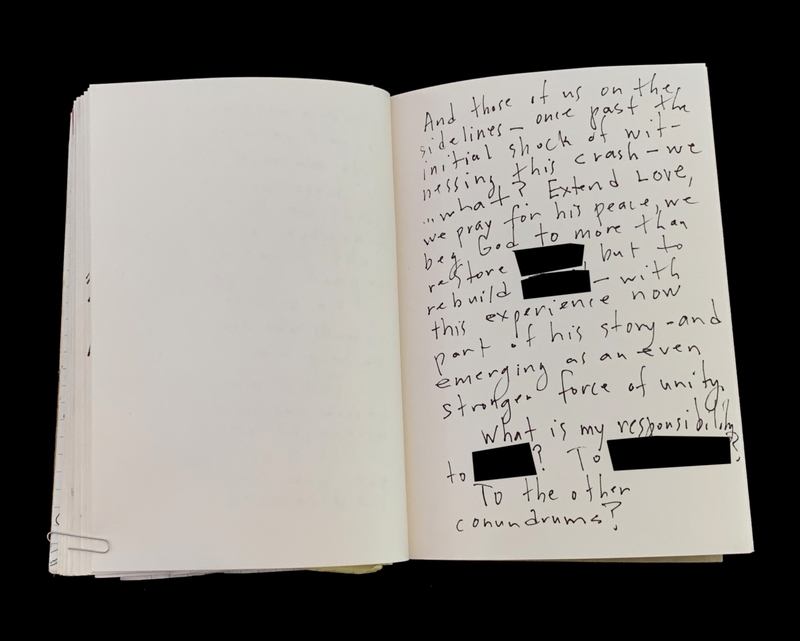 And those of us on the
sidelines – once past the
initial shock of wit-
nessing this crash – we
...what? Extend Love,
we pray for his peace, we
beg God to more than
restore but to
rebuild – with
this experience now
part of his story – and
emerging as an even
stronger force of unity.
What is my responsibility
to ? To ?
To the other
conundrums?